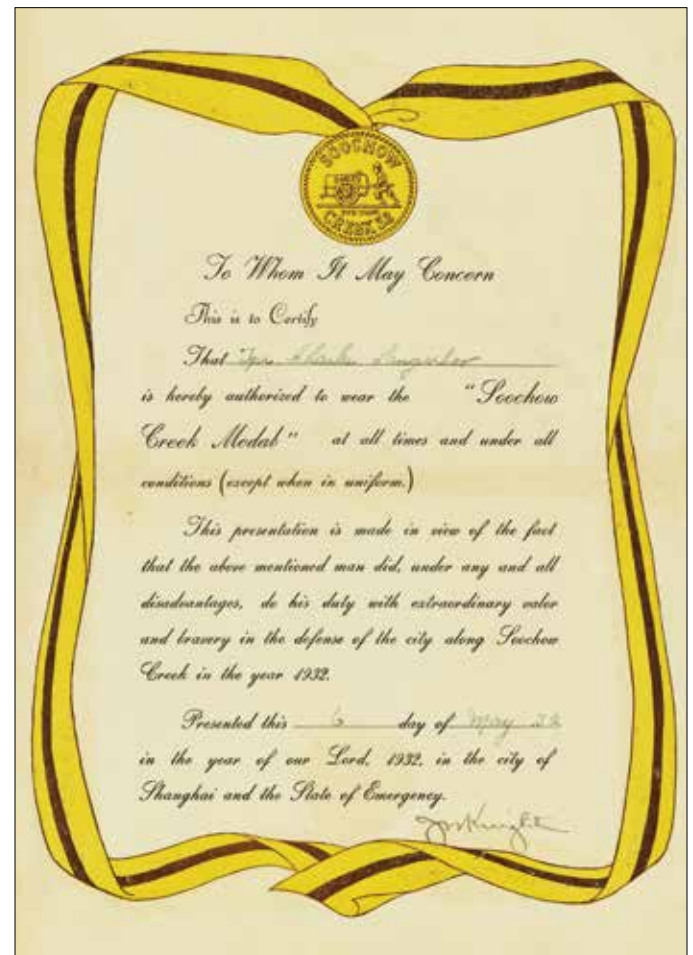 SOOCHOW
CREEK 32
To Whom It May Concern
This is to Certify
That
is hereby authorized to wear the "Soochow
Creek Medal" at all times and under all
conditions (except when in uniform.)
This presentation is made in view of the fact
that the above mentioned man did, under any and all
disadvantages, do his duty with extraordinary valor
and bravery in the defense of the city along Soochow
Creek in the year 1932.
Presented this 6 day of May 32
in the year of our Lord, 1932, in the city of
Shanghai and the State of Emergency.